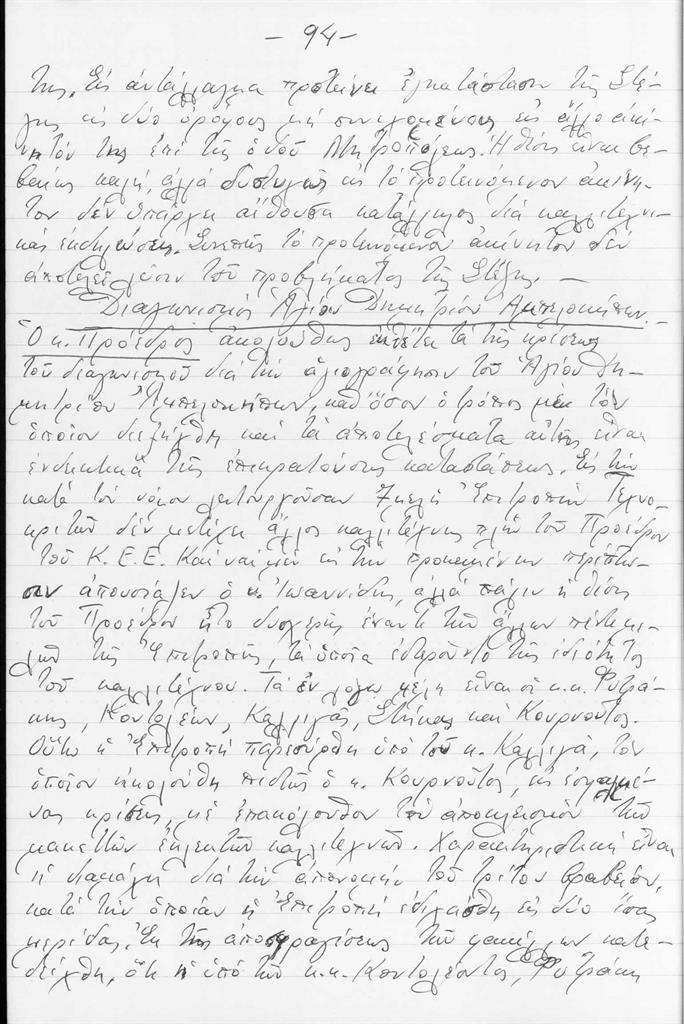 - 94 -
της. Εἰς ἀντάλλαγμα προτείνει ἐγκατάστασιν τῆς Στέ-
γης εἰς δύο ὀρόφους μὴ συνεχομένους εἰς ἄλλο ἀκί-
νητόν της ἐπὶ τῆς ὁδοῦ Μητροπόλεως. Ἡ θέσις εἶναι βε-
βαίως καλή, ἀλλὰ δυστυχῶς εἰς τὸ προτεινόμενον ἀκίνη-
τον δὲν ὑπάρχει αἴθουσα κατάλληλος διὰ καλλιτεχνι-
κὰς ἐκδηλώσεις. Συνεπῶς τὸ προτεινόμενον ἀκίνητον δὲν
ἀποτελεῖ λύσιν τοῦ προβλήματος τῆς Στέγης. —
Διαγωνισμὸς Ἁγίου Δημητρίου Ἀμπελοκήπων. -
Ὁ κ. Πρόεδρος ἀκολούθως ἐκθέτει τὰ τῆς κρίσεως
τοῦ διαγωνισμοῦ διὰ τὴν ἁγιογράφησιν τοῦ Ἁγίου Δη-
μητρίου Ἀμπελοκήπων, καθ' ὅσον ὁ τρόπος μὲ τὸν
ὁποῖον διεξήχθη καὶ τὰ ἀποτελέσματα αὐτῆς εἶναι
ἐνδεικτικὰ τῆς ἐπικρατούσης καταστάσεως. Εἰς τὴν
κατὰ τὸν νόμον λειτουργοῦσαν 7μελῆ Ἐπιτροπὴν Τεχνο-
κριτῶν δὲν μετέχει ἄλλος καλλιτέχνης πλὴν τοῦ Προέδρου
τοῦ Κ.Ε.Ε. Καὶ ναὶ μὲν εἰς τὴν προκειμένην περίπτω-
σιν ἀπουσίαζεν ὁ κ. Ἰωαννίδης, ἀλλὰ πάλιν ἡ θέσις
τοῦ Προέδρου ἦτο δυσχερὴς ἔναντι τῶν ἄλλων πέντε με-
λῶν τῆς Ἐπιτροπῆς, τὰ ὁποῖα ἐστεροῦντο τῆς ἰδιότητος
τοῦ καλλιτέχνου. Τὰ ἐν λόγῳ μέλη εἶναι οἱ κ.κ. Φυτρά-
κης, Κοντολέων, Καλλιγᾶς, Στήκας καὶ Κουρνοῦτος.
Οὕτω ἡ Ἐπιτροπὴ παρεσύρθη ὑπὸ τοῦ κ. Καλλιγᾶ, τὸν
ὁποῖον ἠκολούθη πιστῶς ὁ κ. Κουρνοῦτος, εἰς ἐσφαλμέ-
νας κρίσεις, μὲ ἐπακόλουθον τὸν ἀποκλεισμὸν τῶν
μακεττῶν ἐκλεκτῶν καλλιτεχνῶν. Χαρακτηριστικὴ εἶναι
ἡ διαμάχη διὰ τὴν ἀπονομὴν τοῦ τρίτου βραβείου,
κατὰ τὴν ὁποίαν ἡ Ἐπιτροπὴ ἐδιχάσθη εἰς δύο ἴσας
μερίδας. Ἐκ τῆς ἀποσφραγίσεως τῶν φακέλλων κατε-
δείχθη, ὅτι ἡ ὑπὸ τῶν κ.κ. Κοντολέοντος, Φυτράκη